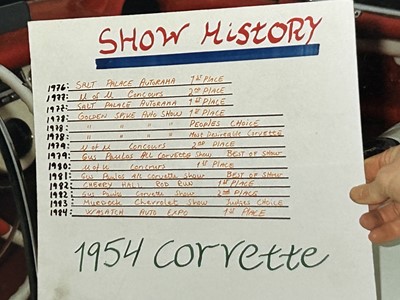 SHOW HISTORY
1976: SALT PALACE AUTORAMA 1st PLACE
1977: U of U CONCOURS 2nd PLACE
1977: SALT PALACE AUTORAMA 1st PLACE
1978: GOLDEN SPIKE AUTO SHOW 1st PLACE
1978: " " " " PEOPLES CHOICE
1978: " " " " Most Desireable Corvette
1979: U of U CONCOURS 2nd PLACE
1979: Gus Paulos All Corvette Show BEST OF SHOW
1980: U of U Concours 1st PLACE
1981: Gus Paulos All Corvette Show BEST OF SHOW
1982: CHERRY HILL ROD RUN 1st PLACE
1982: Gus Paulos Corvette Show 2nd PLACE
1983: Murdock Chevrolet Show Judges CHOICE
1984: WASATCH AUTO EXPO 1st PLACE
1954 Corvette